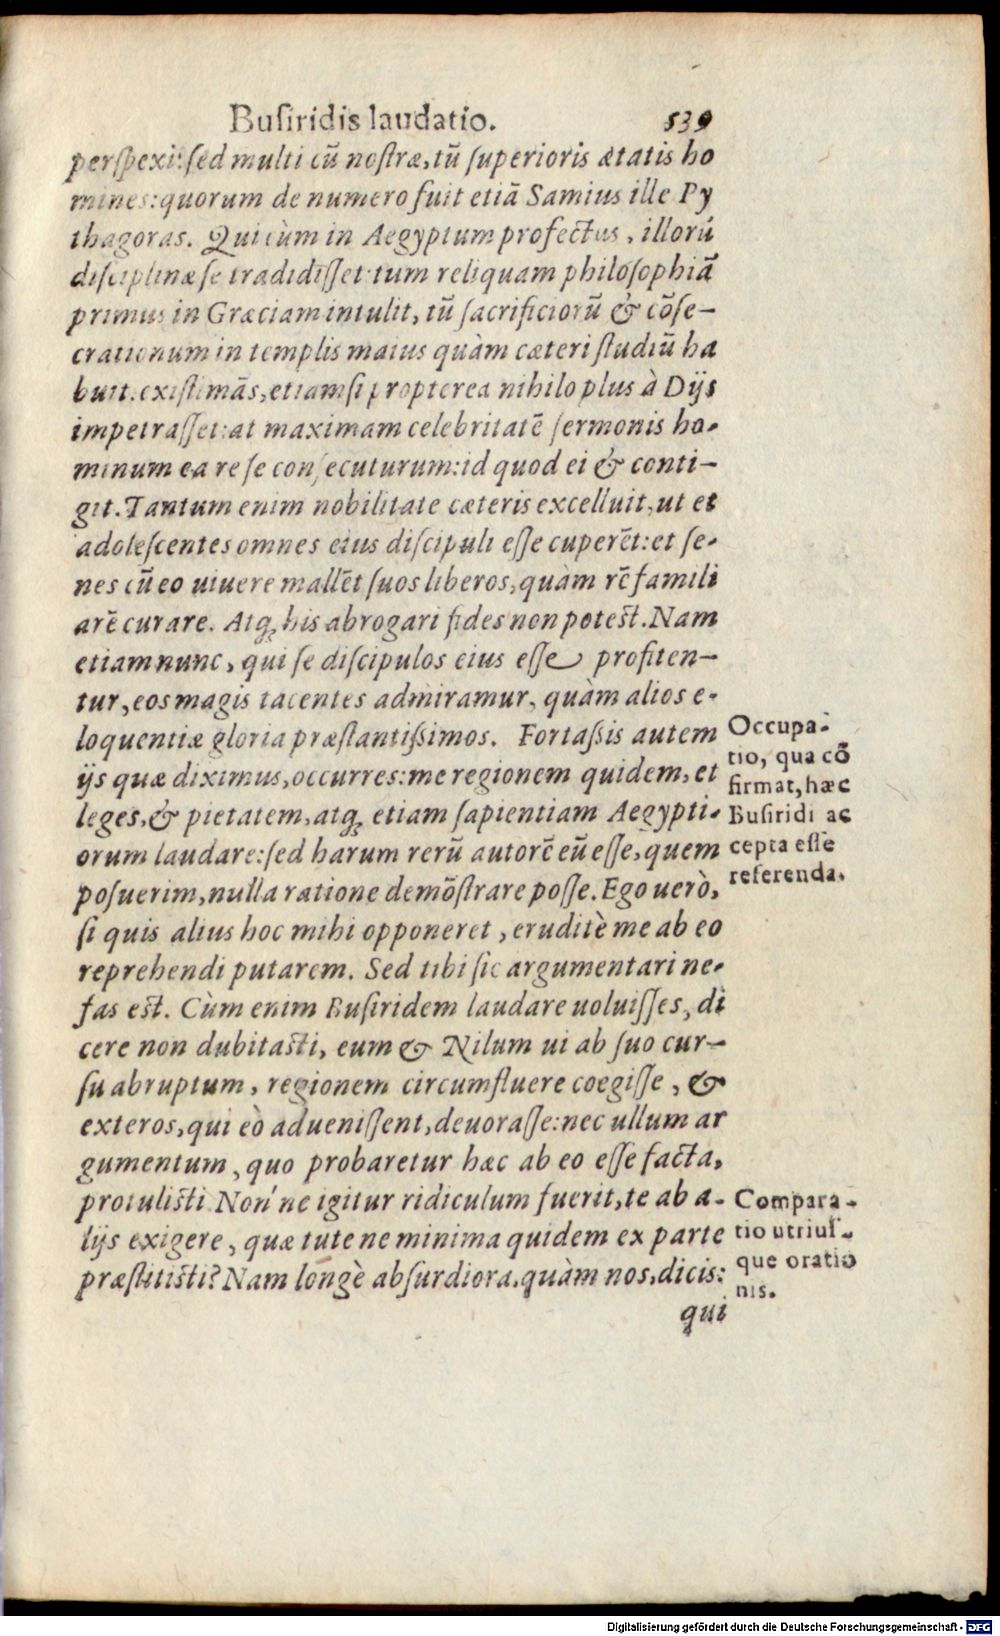 Buſiridis laudatio. 539
perſpexi: ſed multi cũ noſtræ, tũ ſuperioris ætatis ho
mines: quorum de numero fuit etiã Samius ille Py
thagoras. Qui cùm in Aegyptum profectus, illorũ
diſciplinæ ſe tradidiſſet: tum reliquam philoſophiã
primus in Græciam intulit, tũ ſacrificiorũ & cõſe-
crationum in templis maius quàm cæteri ſtudiũ ha
buit. exiſtimãs, etiamſi propterea nihilo plus à Dijs
impetraſſet: at maximam celebritatẽ ſermonis ho-
minum ea re ſe conſecuturum: id quod ei & conti-
git. Tantum enim nobilitate cæteris excelluit, ut et
adoleſcentes omnes eius diſcipuli eſſe cuperẽt: et ſe-
nes cũ eo uiuere mallẽt ſuos liberos, quàm rẽ famili
arẽ curare. Atq; his abrogari fides non poteſt. Nam
etiam nunc, qui ſe diſcipulos eius eſſe profiten-
tur, eos magis tacentes admiramur, quàm alios e-
loquentiæ gloria præſtantißimos. Fortaßis autem
ijs quæ diximus, occurres: me regionem quidem, et
leges, & pietatem, atq; etiam ſapientiam Aegypti-
orum laudare: ſed harum rerũ autorẽ eũ eſſe, quem
poſuerim, nulla ratione demõſtrare poſſe. Ego uerò,
ſi quis alius hoc mihi opponeret, eruditè me ab eo
reprehendi putarem. Sed tibi ſic argumentari ne-
fas eſt. Cùm enim Buſiridem laudare uoluiſſes, di
cere non dubitaſti, eum & Nilum ui ab ſuo cur-
ſu abruptum, regionem circumfluere coegiſſe, &
exteros, qui eò adueniſſent, deuoraſſe: nec ullum ar
gumentum, quo probaretur hæc ab eo eſſe facta,
protuliſti. Non'ne igitur ridiculum fuerit, te ab a-
lijs exigere, quæ tute ne minima quidem ex parte
præſtitiſti? Nam longè abſurdiora, quàm nos, dicis:
qui
Occupa-
tio, qua cõ
firmat, hæc
Buſiridi ac
cepta eſſe
referenda.
Compara-
tio utriuſ-
que oratio
nis.
Digitalisierung gefördert durch die Deutsche Forschungsgemeinschaft - DFG